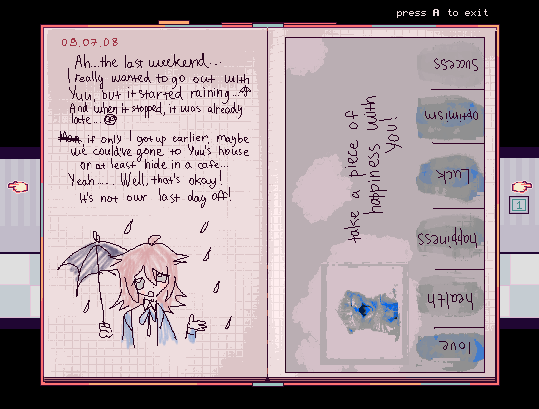 press A to exit
09.07.08
Ah...the last weekend...
I really wanted to go out with
Yuu, but it started raining...
And when it stopped, it was already
late...
if only I got up earlier, maybe
we could've gone to Yuu's house
or at least hide in a cafe...
Yeah..... Well, that's okay!
It's not our last day off!
take a piece of
happiness with
you!
Success
Optimism
Luck
happiness
health
love
1